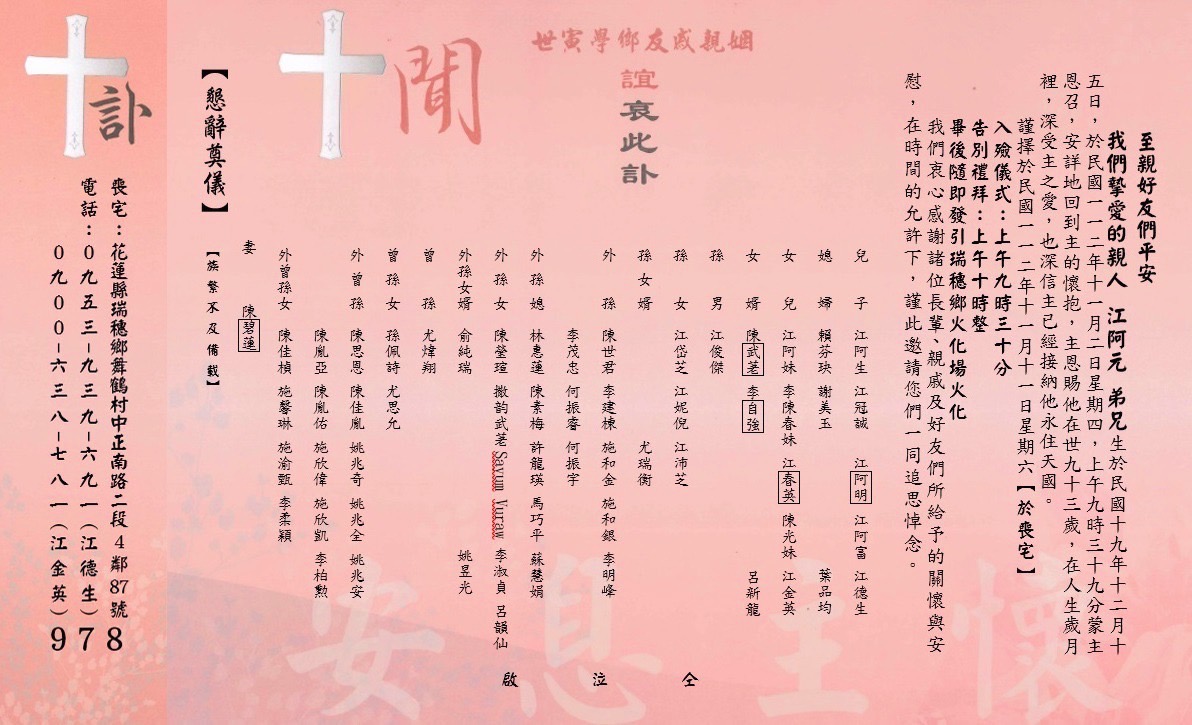 至親好友們平安
我們摯愛的親人 江阿元 弟兄生於民國十九年十二月十
五日，於民國一一二年十一月二日星期四，上午九時三十九分蒙主
恩召，安詳地回到主的懷抱，主恩賜他在世九十三歲，在人生歲月
裡，深受主之愛，也深信主已經接納他永住天國。
謹擇於民國一一二年十一月十一日星期六【於喪宅】
入殮儀式：上午九時三十分
告別禮拜：上午十時整
畢後隨即發引瑞穗鄉火化場火化
我們衷心感謝諸位長輩、親戚及好友們所給予的關懷與安
慰，在時間的允許下，謹此邀請您們一同追思悼念。
兒子 江阿生 江冠誠 江阿明 江阿富 江德生
媳婦 賴芬玦 謝美玉 葉品均
女兒 江阿妹 李陳春妹 江春英 陳光妹 江金英
女婿 陳武荖 李自強 呂新龍
孫男 江俊傑
孫女 江岱芝 江妮倪 江沛芝
孫女婿 尤瑞衡
外孫 陳世君 李建棟 施和金 施和銀 李明峰
李茂忠 何振睿 何振宇
外孫媳 林惠蓮 陳素梅 許龍瑛 馬巧平 蘇慧娟
外孫女 陳瑩瑄 撒韵武荖Savum Vuraw 李淑貞 呂韻仙
外孫女婿 俞純瑞 姚昱光
曾孫 尤煒翔
曾孫女 孫佩詩 尤思允
外曾孫 陳思恩 陳佳胤 姚兆奇 姚兆全 姚兆安
陳胤亞 陳胤佑 施欣偉 施欣凱 李柏勲
外曾孫女 陳佳楨 施馨琳 施渝甄 李柔穎
妻 陳碧蓮
【族繁不及備載】
仝泣啟
姻親戚友鄉學寅世
誼哀此訃
聞
【懇辭奠儀】
訃
喪宅：花蓮縣瑞穗鄉舞鶴村中正南路二段4鄰87號
電話：０９５３－９３９－６９１（江德生）
０９００－６３８－７８１（江金英）
978
安息主懷